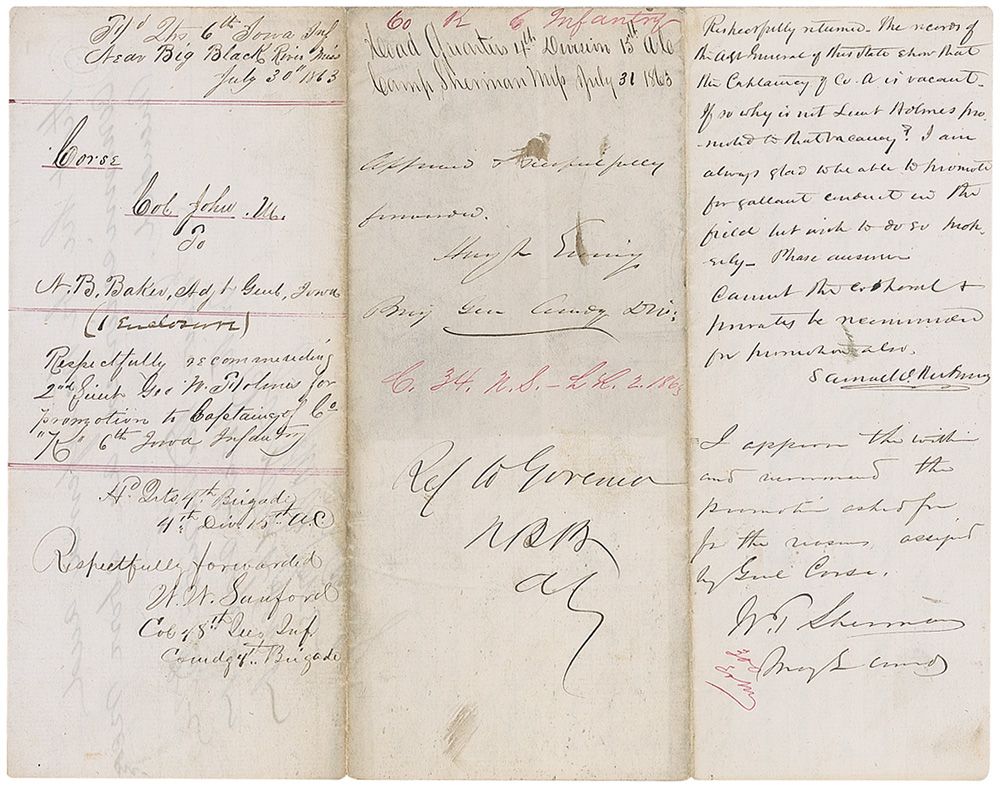 Hd Qrs 6th Iowa Inf
Near Big Black River Miss
July 30th 1863
Corse
Col John. M.
To
N. B. Baker, Adjt Genl, Iowa
(1 Enclosure)
Respectfully recommending
2nd Lieut Geo W. Holmes for
promotion to Captaincy of Co
"K" 6th Iowa Infantry
Hd Qrts 4th Brigade
4th Div. 15th A.C
Respectfully forwarded
W. W. Sanford
Col 48th Ills Inf
Comdg 4th Brigade
Co K 6 Infantry
Head Quarters 4th Division 15th A C
Camp Sherman Miss July 31 1863
Approved & respectfully
forwarded.
Hugh Ewing
Brig Gen Comdg Div:
C. 34. N. S. - 2. 1863
Ref to Governor
NBB
AG
Respectfully returned. The records of
the Adjt General of this State show that
the Captaincy of Co. A is vacant.
If so why is not Lieut Holmes pro-
moted to that vacancy? I am
always glad to be able to promote
for gallant conduct in the
field but wish to do so prop-
erly - Please answer
Cannot the corporal &
privates be recommended
for promotion also.
Samuel J. Kirkwood
I approve the within
and recommend the
promotion asked for
for the reasons assigned
by Genl Corse.
W. T. Sherman
Maj Genl Comdg